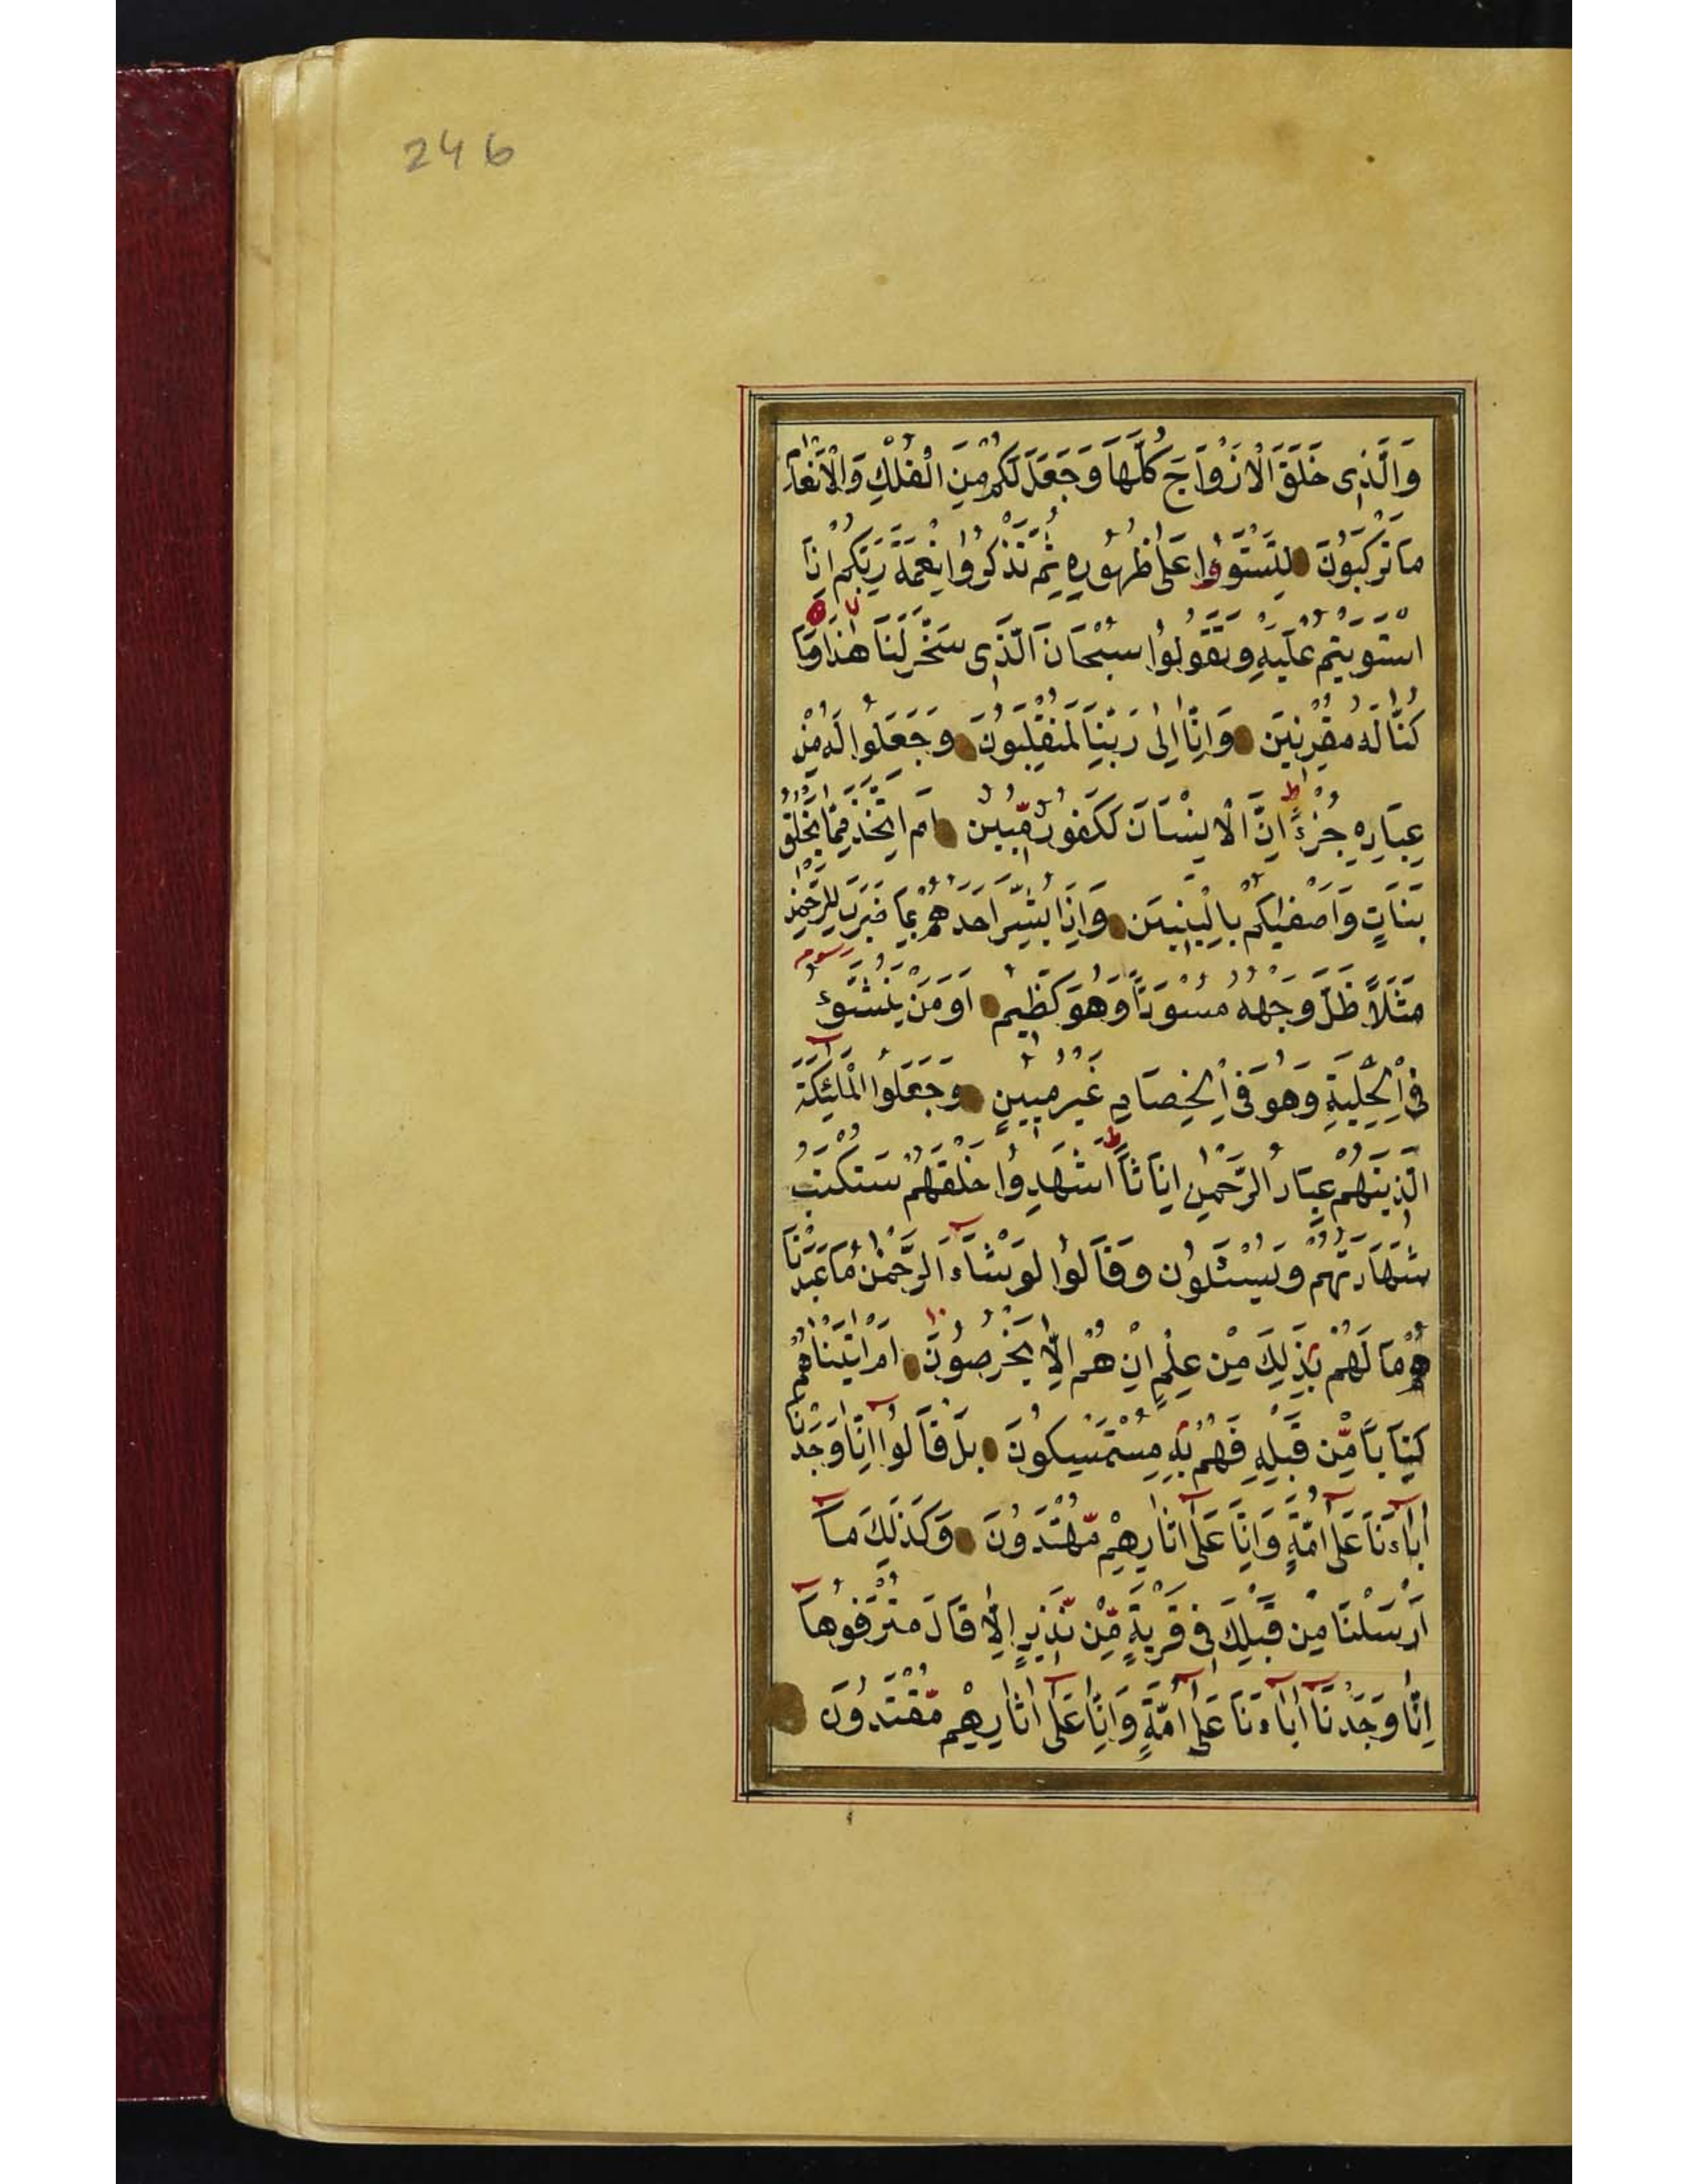 246
وَالَّذِى خَلَقَ الْاَزْوَاجَ كُلَّهَا وَجَعَلَ لَكُمْ مِنَ الْفُلْكِ وَالْاَنْعَامِ
مَا تَرْكَبُونَ لِتَسْتَوُوا عَلٰى ظُهُورِهِ ثُمَّ تَذْكُرُوا نِعْمَةَ رَبِّكُمْ اِذَا
اسْتَوَيْتُمْ عَلَيْهِ وَتَقُولُوا سُبْحَانَ الَّذِى سَخَّرَ لَنَا هٰذَا وَمَا
كُنَّا لَهُ مُقْرِنِينَ وَاِنَّا اِلٰى رَبِّنَا لَمُنْقَلِبُونَ وَجَعَلُوا لَهُ مِنْ
عِبَادِهِ جُزْءًا ط اِنَّ الْاِنْسَانَ لَكَفُورٌ مُّبِينٌ اَمِ اتَّخَذَ مِمَّا يَخْلُقُ
بَنَاتٍ وَاَصْفٰيكُمْ بِالْبَنِينَ وَاِذَا بُشِّرَ اَحَدُهُمْ بِمَا ضَرَبَ لِلرَّحْمٰنِ
مَثَلًا ظَلَّ وَجْهُهُ مُسْوَدًّا وَهُوَ كَظِيمٌ اَوَمَنْ يُنَشَّؤُ
فِى الْحِلْيَةِ وَهُوَ فِى الْخِصَامِ غَيْرُ مُبِينٍ وَجَعَلُوا الْمَلٰٓئِكَةَ
الَّذِينَهُمْ عِبَادُ الرَّحْمٰنِ اِنَاثًا ط اَشَهِدُوا خَلْقَهُمْ سَتُكْتَبُ
شَهَادَتُهُمْ وَيُسْئَلُونَ وَقَالُوا لَوْ شَآءَ الرَّحْمٰنُ مَا عَبَدْنَا
هُمْ مَا لَهُمْ بِذٰلِكَ مِنْ عِلْمٍ اِنْ هُمْ اِلَّا يَخْرُصُونَ اَمْ اٰتَيْنَاهُمْ
كِتَابًا مِّنْ قَبْلِهِ فَهُمْ بِهِ مُسْتَمْسِكُونَ بَلْ قَالُوا اِنَّا وَجَدْنَا
اٰبَآءَنَا عَلٰٓى اُمَّةٍ وَاِنَّا عَلٰٓى اٰثَارِهِمْ مُّهْتَدُونَ وَكَذٰلِكَ مَآ
اَرْسَلْنَا مِنْ قَبْلِكَ فِى قَرْيَةٍ مِّنْ نَّذِيرٍ اِلَّا قَالَ مُتْرَفُوهَآ
اِنَّا وَجَدْنَآ اٰبَآءَنَا عَلٰٓى اُمَّةٍ وَاِنَّا عَلٰٓى اٰثَارِهِمْ مُّقْتَدُونَ